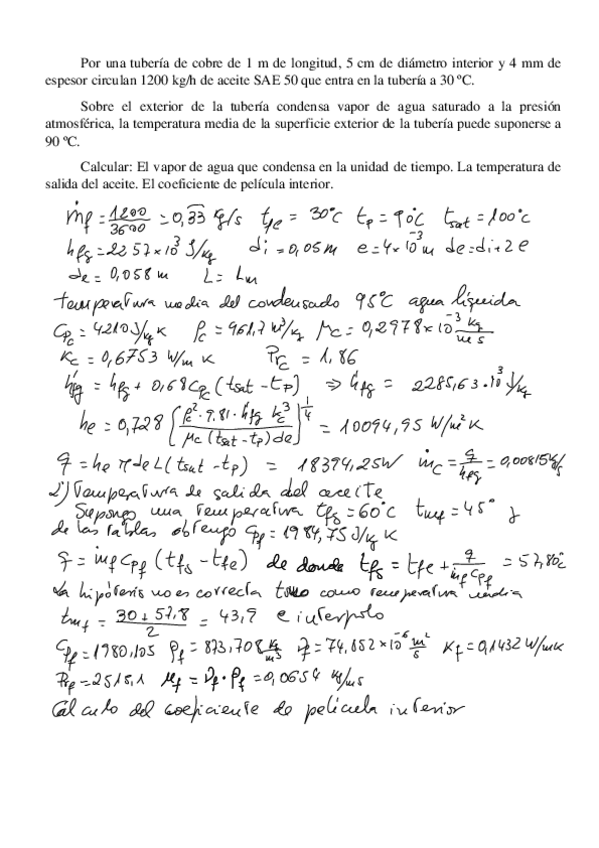 Por una tubería de cobre de 1 m de longitud, 5 cm de diámetro interior y 4 mm de
espesor circulan 1200 kg/h de aceite SAE 50 que entra en la tubería a 30 ºC.
Sobre el exterior de la tubería condensa vapor de agua saturado a la presión
atmosférica, la temperatura media de la superficie exterior de la tubería puede suponerse a
90 ºC.
Calcular: El vapor de agua que condensa en la unidad de tiempo. La temperatura de
salida del aceite. El coeficiente de película interior.
ṁf = 1200/3600 = 0,33 kg/s tfe = 30°C tp = 90°C tsat = 100°C
hfg = 2257×10³ J/kg di = 0,05 m e = 4×10⁻³ m de = di+2e
de = 0,058 m L = 1m
temperatura media del condensado 95°C agua líquida
Cpc = 4210 J/kg K ρc = 961,7 m³/kg μc = 0,2978×10⁻³ kg/ms
Kc = 0,6753 W/m K Prc = 1,86
h'fg = hfg + 0,68 Cpc (tsat - tp) ⇒ h'fg = 2285,63·10³ J/kg
he = 0,728 [ρc²·9,81·h'fg kc³ / μc (tsat - tp) de]^1/4 = 10094,95 W/m² K
q = he π de L (tsat - tp) = 18394,25W ṁc = q/h'fg = 0,00815 kg/s
2º) Temperatura de salida del aceite
Supongo una temperatura tfs = 60°C tmf = 45° y
de las tablas obtengo Cpf = 1984,75 J/kg K
q = ṁf Cpf (tfs - tfe) de donde tfs = tfe + q/ṁf Cpf = 57,80°C
La hipótesis no es correcta tomo como temperatura media
tmf = 30+57,8/2 = 43,9 e interpolo
Cpf = 1980,105 ρf = 873,708 kg/m³ νf = 74,852×10⁻⁶ m²/s Kf = 0,1432 W/mK
Prf = 2515,1 μf = νf·ρf = 0,0654 kg/ms
Cálculo del coeficiente de película interior